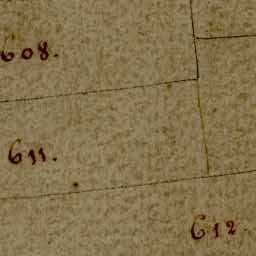 608.
611.
612.